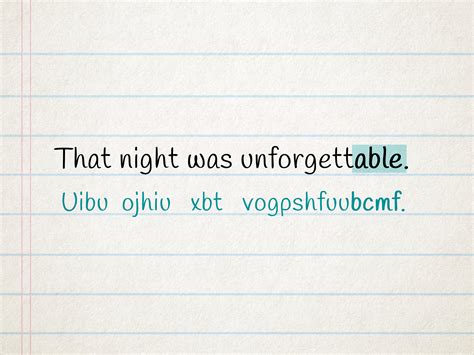 That night was unforgettable.
Uibu ojhiu xbt vogpshfuubcmf.